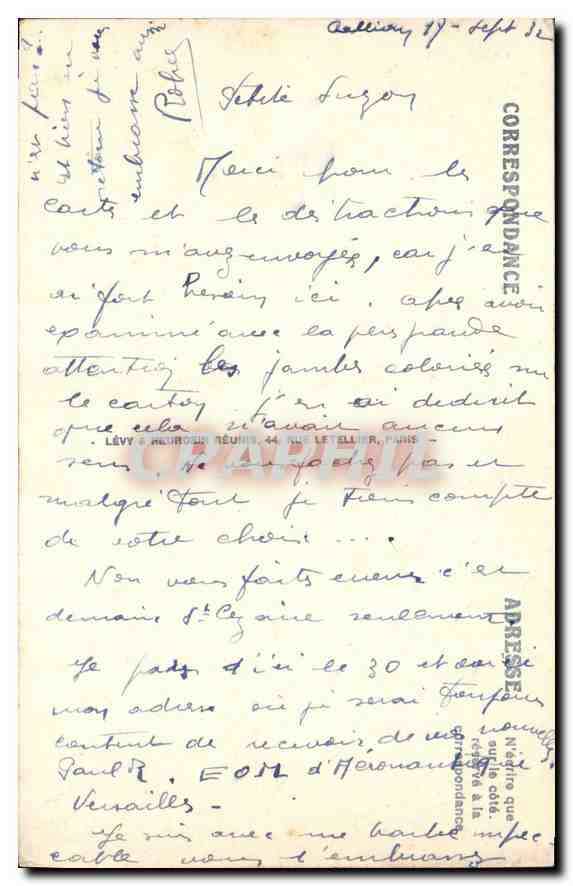 17 - Sept 32
Petite Suzon
Merci pour les
carte et les distractions que
vous m'avez envoyés, car j'en
ai fort besoin ici. après avoir
examiné avec la plus grande
attention les jambes coloriés sur
le carton j'en ai deduit
que cela n'avait aucun
sens. Ne vous fachez pas et
malgré tout je tiens compte
de votre choix ....
Non vous faites erreur c'est
demain St Cezaire seulement
Je pars d'ici le 30 et voici
mon adresse où je serai toujours
content de recevoir de vos nouvelles.
Paul R. EOM d'Aéronautique
Versailles -
Je suis avec une barbe impec-
cable vous l'embrasse
n'est pas
est bien
retour je vous
embrasse aussi
CORRESPONDANCE
LÉVY & NEURDEIN RÉUNIS, 44, RUE LETELLIER, PARIS -
CPAPHIL
ADRESSE
N'écrire que
sur le côté.
réservé à la
correspondance